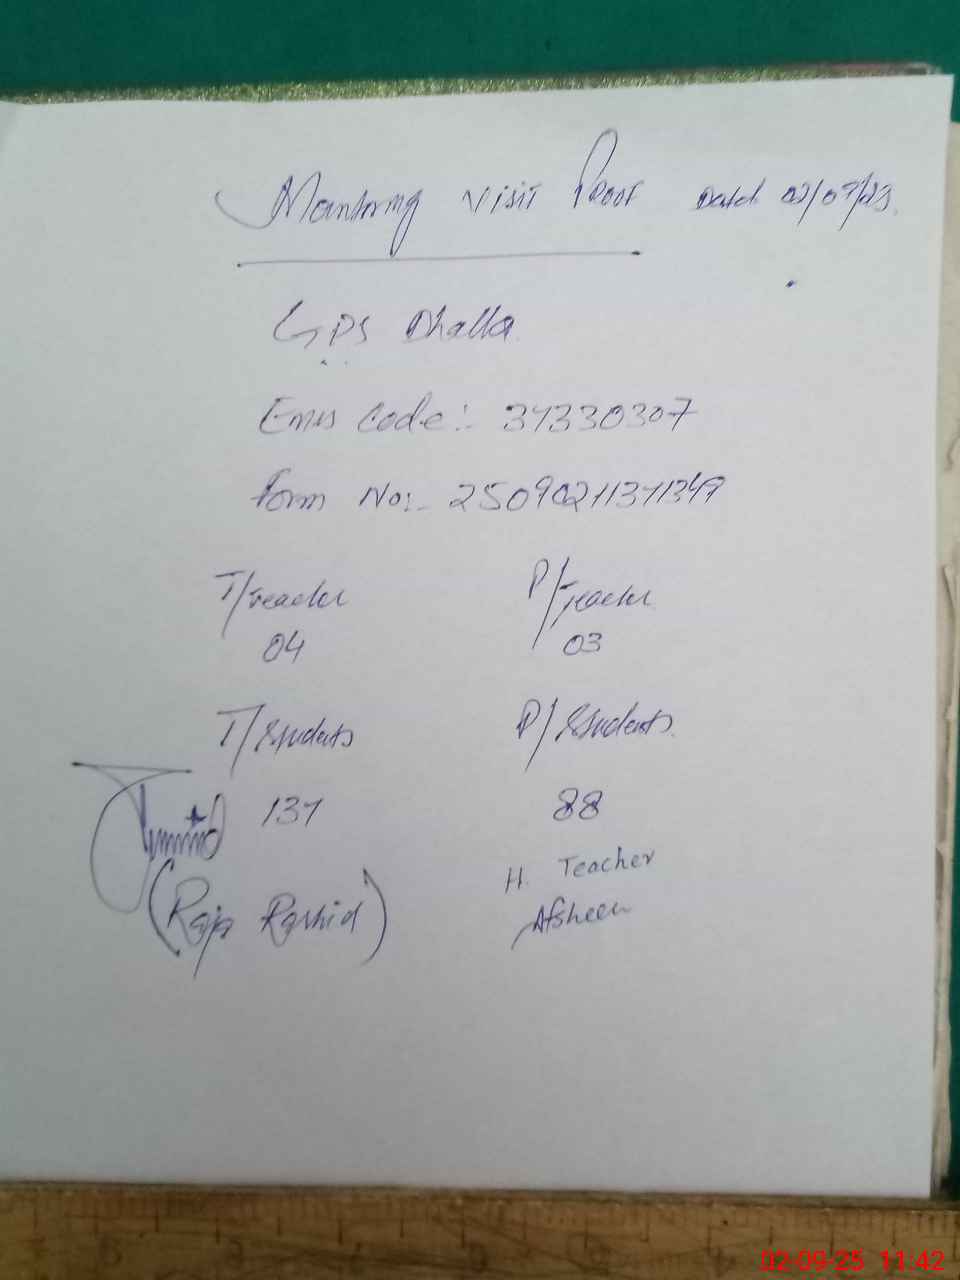 Monitoring Visit Proof Dated 02/09/25.
GPS Dhalla
Emis Code:- 37330307
Form No:- 25090211371349
T/Teacher P/Teacher
04 03
T/Students P/Students
137 88
H. Teacher
(Raja Rashid) Afsheen
02-09-25 11:42